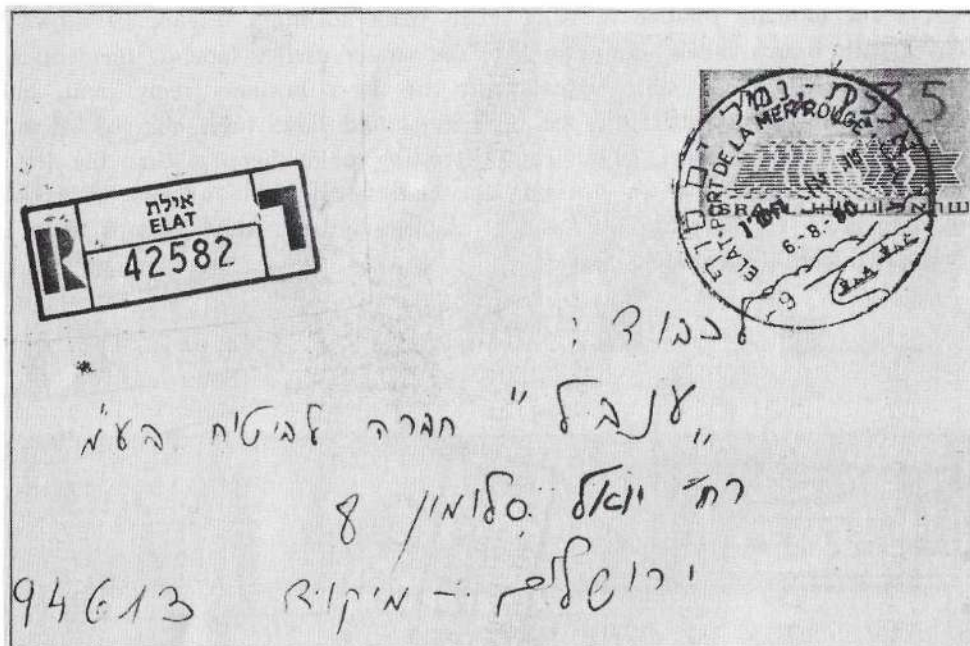 אילת
ELAT
R
42582
ELAT-PORT DE LA MER ROUGE
6.-8.-80
לכבוד:
"ענבל" חברה לביטוח בע"מ
רח' יואל סלומון 8
ירושלים – מיקוד 94613